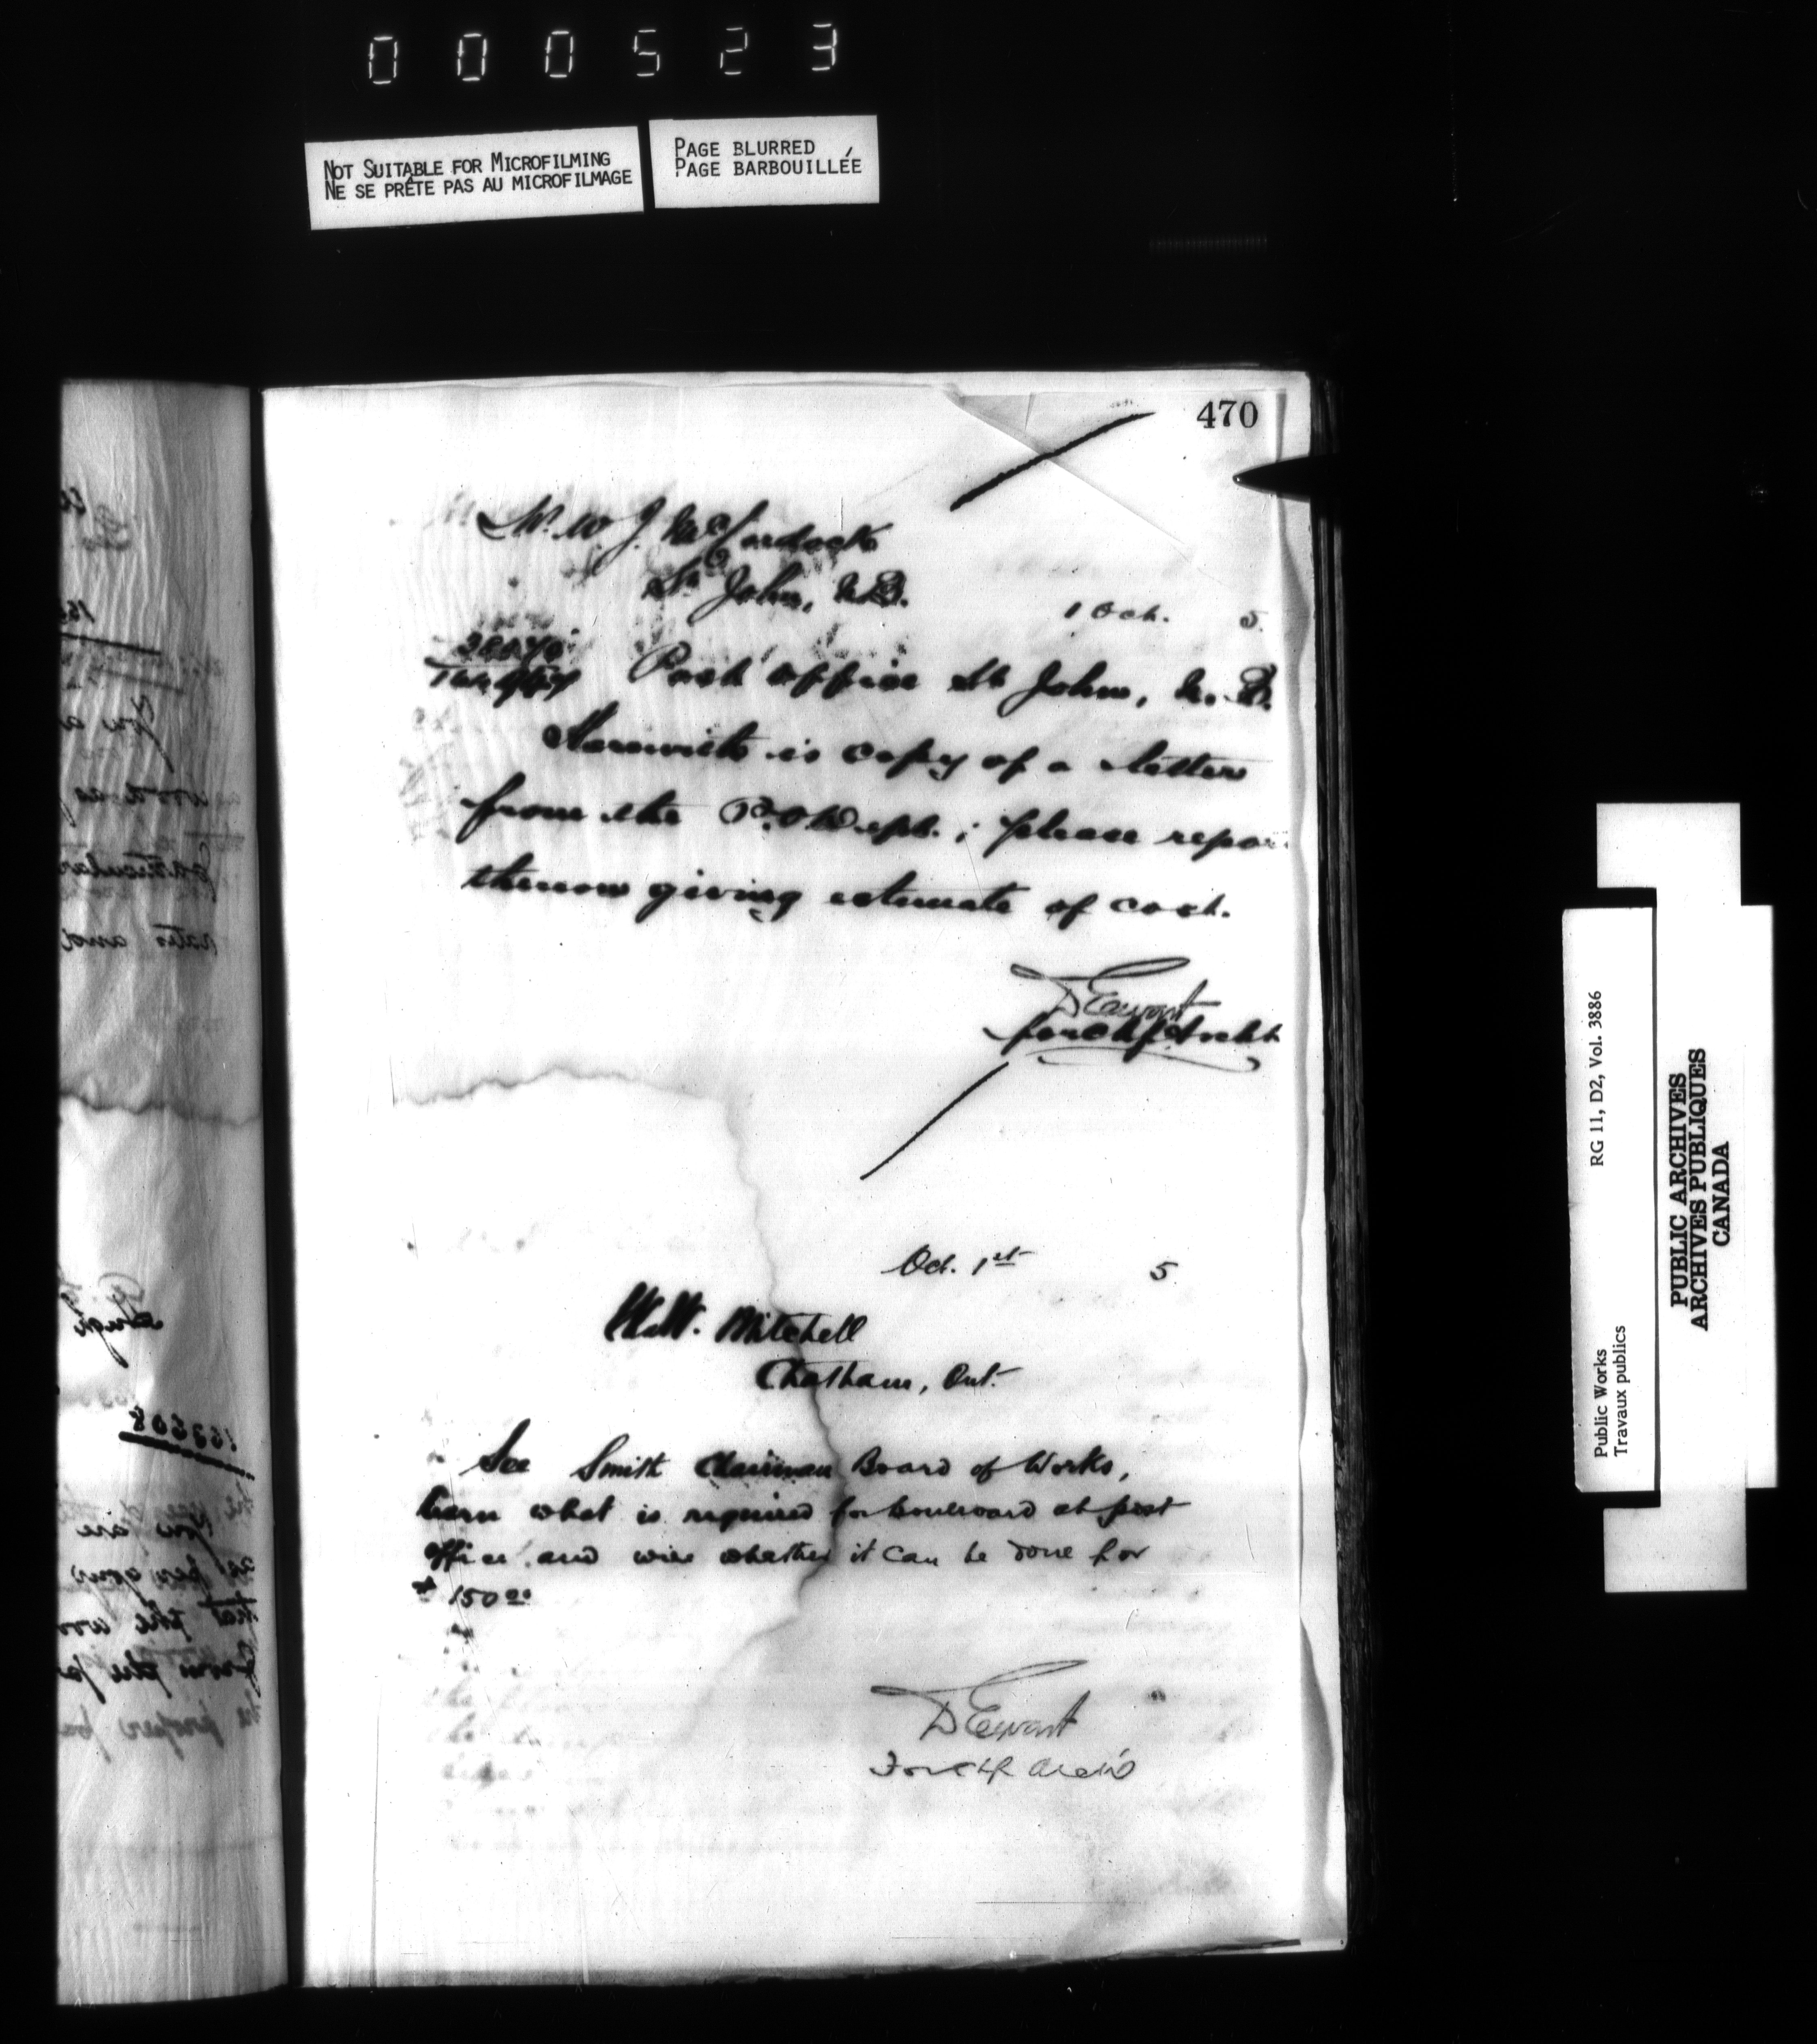 000523
NOT SUITABLE FOR MICROFILMING
NE SE PRÊTE PAS AU MICROFILMAGE
PAGE BLURRED
PAGE BARBOUILLÉE
470
Mr. W. J. McCordock
St John, N.B.
1 Oct. 5.
Post Office St John, N.B.
Herewith is copy of a letter
from the P.O. Dept. ; please repor
thereon giving estimate of cost.
D Ewart
for Chf Archt
Oct. 1st 5
W. Mitchell
Chatham, Ont.
See Smith Chairman Board of Works,
learn what is required for boulevard at post
office and wire whether it can be done for
$150.00
D Ewart
For Chf Archt
Public Works
Travaux publics
RG 11, D2, Vol. 3886
PUBLIC ARCHIVES
ARCHIVES PUBLIQUES
CANADA